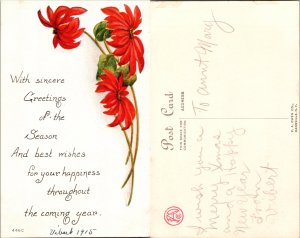 With sincere
Greetings
of the
Season
And best wishes
for your happiness
throughout
the coming year.
Vibert 1915
Post Card
THIS SPACE FOR
COMMUNICATION
ADDRESS
To Aunt Mary
I wish you a
Merry Xmas
and a Happy
New Year
from
Vibert